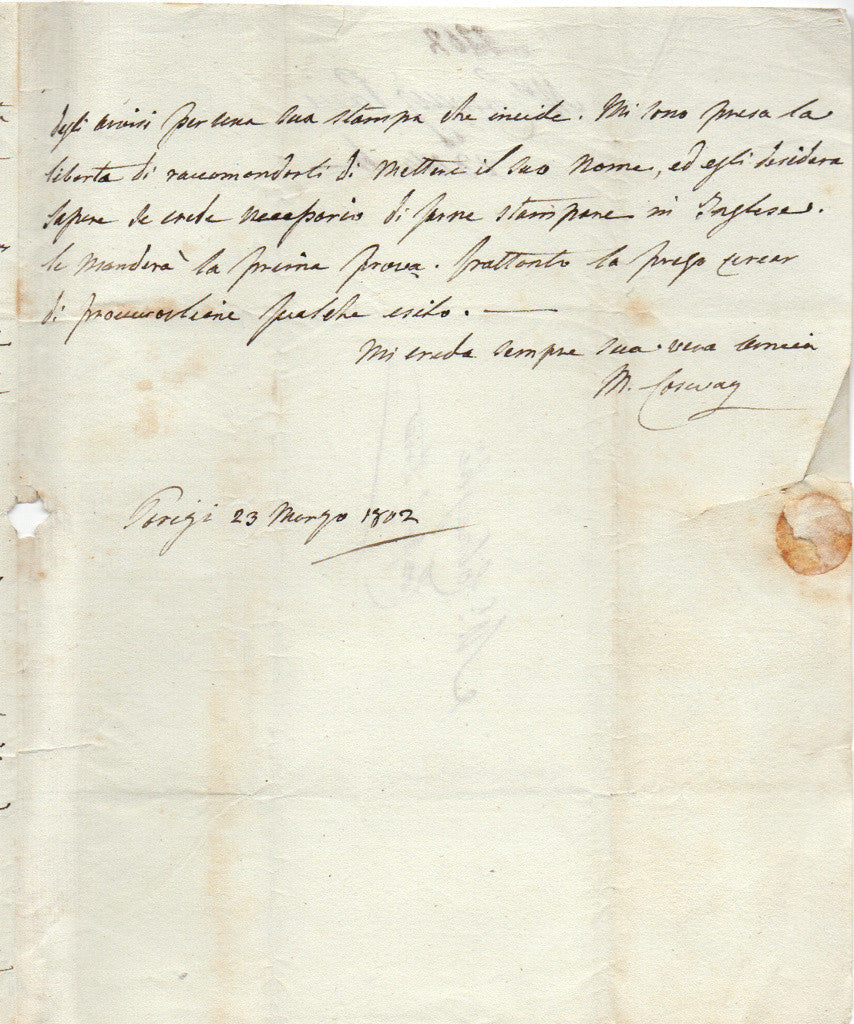 degli avvisi per una sua stampa che incide. Mi sono presa la
libertà di raccomandarli di mettere il suo Nome, ed egli desidera
sapere se crede necessario di farne stampare in Inglese.
le manderà la prima prova. frattanto la prego cercar
di procurargliene qualche esito.
Mi creda sempre sua vera amica
M. Cosway
Parigi 23 Marzo 1802